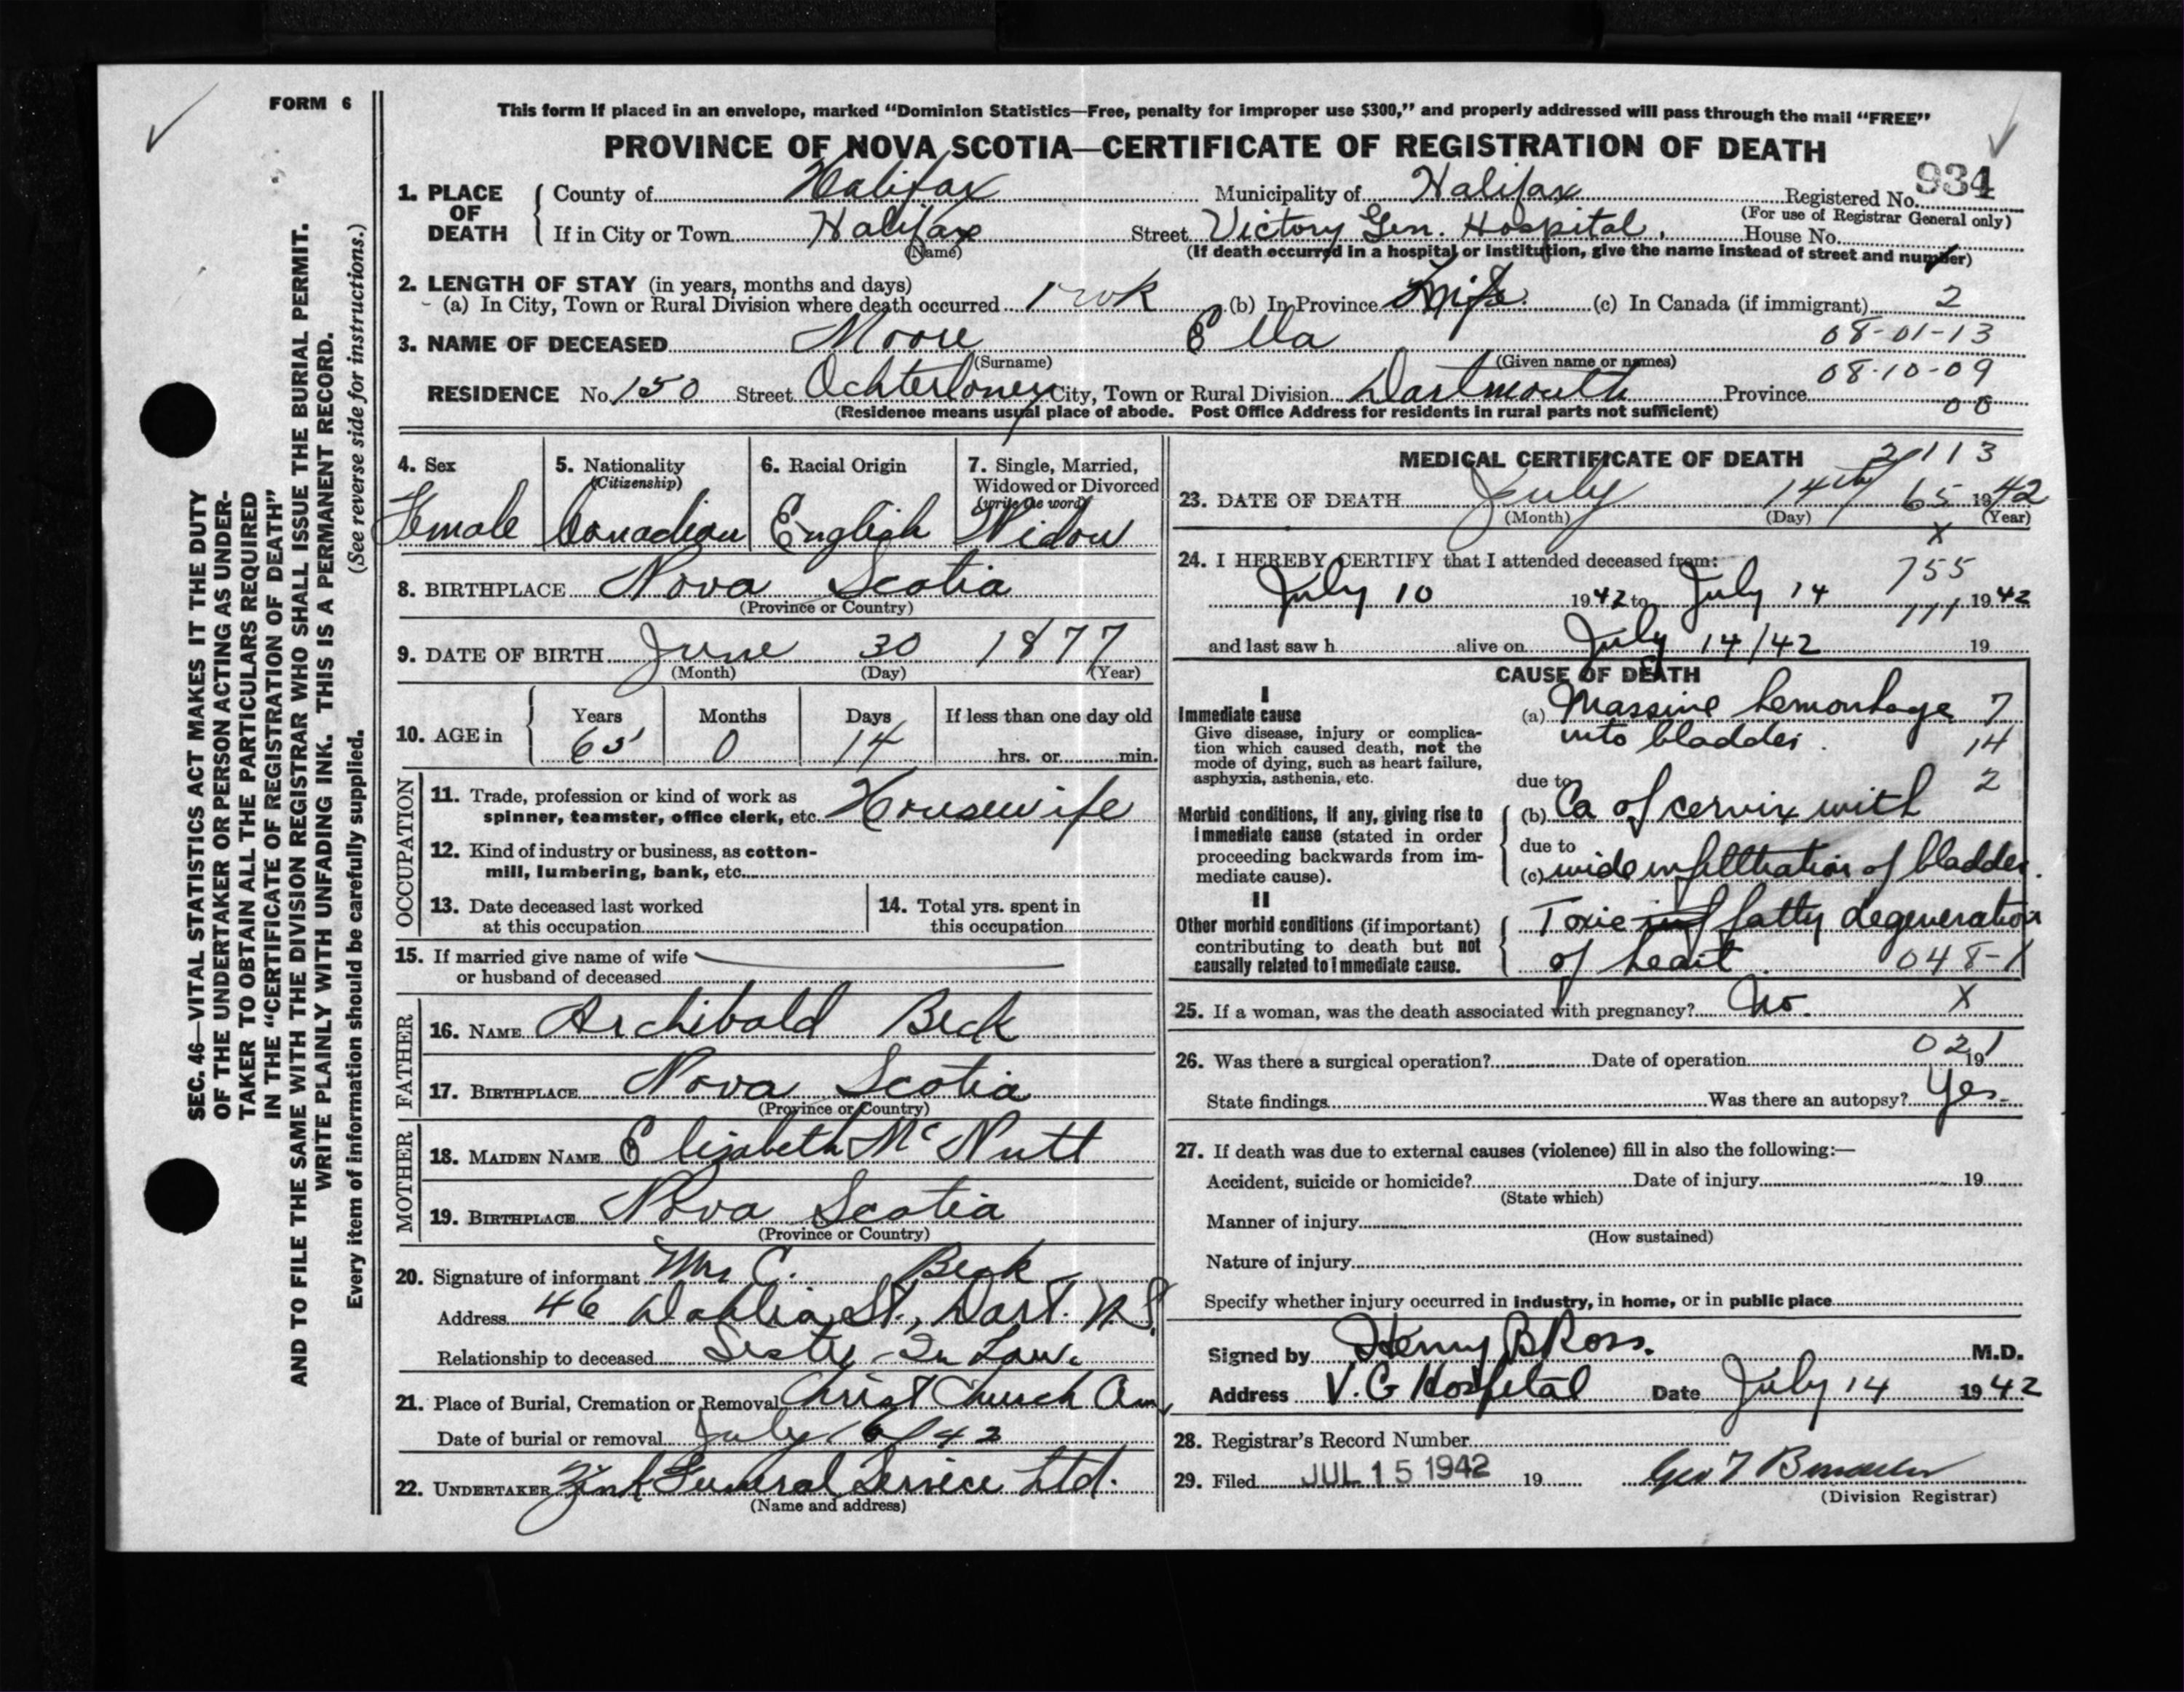 FORM 6
SEC. 46—VITAL STATISTICS ACT MAKES IT THE DUTY
OF THE UNDERTAKER OR PERSON ACTING AS UNDER-
TAKER TO OBTAIN ALL THE PARTICULARS REQUIRED
IN THE "CERTIFICATE OF REGISTRATION OF DEATH"
AND TO FILE THE SAME WITH THE DIVISION REGISTRAR WHO SHALL ISSUE THE BURIAL PERMIT.
WRITE PLAINLY WITH UNFADING INK. THIS IS A PERMANENT RECORD.
Every item of information should be carefully supplied. (See reverse side for instructions.)
This form if placed in an envelope, marked "Dominion Statistics—Free, penalty for improper use $300," and properly addressed will pass through the mail "FREE"
PROVINCE OF NOVA SCOTIA—CERTIFICATE OF REGISTRATION OF DEATH
934
1. PLACE OF DEATH County of Halifax Municipality of Halifax Registered No.
(For use of Registrar General only)
If in City or Town Halifax Street Victory Gen. Hospital. House No.
(Name) (If death occurred in a hospital or institution, give the name instead of street and number)
2. LENGTH OF STAY (in years, months and days)
(a) In City, Town or Rural Division where death occurred 1 wk (b) In Province Life. (c) In Canada (if immigrant) 2
08-01-13
3. NAME OF DECEASED Moore Ella
(Surname) (Given name or names)
08-10-09
RESIDENCE No. 150 Street Ochterloney City, Town or Rural Division Dartmouth Province
00
(Residence means usual place of abode. Post Office Address for residents in rural parts not sufficient)
4. Sex 5. Nationality 6. Racial Origin 7. Single, Married,
(Citizenship) Widowed or Divorced
(write the word)
Female Canadian English Widow
8. BIRTHPLACE Nova Scotia
(Province or Country)
9. DATE OF BIRTH June 30 1877
(Month) (Day) (Year)
10. AGE in Years Months Days If less than one day old
65 0 14 hrs. or min.
OCCUPATION
11. Trade, profession or kind of work as
spinner, teamster, office clerk, etc. Housewife
12. Kind of industry or business, as cotton-
mill, lumbering, bank, etc.
13. Date deceased last worked
at this occupation
14. Total yrs. spent in
this occupation
15. If married give name of wife
or husband of deceased
FATHER
16. NAME Archibald Beck
17. BIRTHPLACE Nova Scotia
(Province or Country)
MOTHER
18. MAIDEN NAME Elizabeth McNutt
19. BIRTHPLACE Nova Scotia
(Province or Country)
20. Signature of informant Mrs C. Beck
Address 46 Dahlia St., Dart. N.S.
Relationship to deceased Sister-In Law.
21. Place of Burial, Cremation or Removal Christ Church
Date of burial or removal July 16/42
22. UNDERTAKER Zink Funeral Service Ltd.
(Name and address)
MEDICAL CERTIFICATE OF DEATH 2113
23. DATE OF DEATH July 14th 65 1942
(Month) (Day) (Year)
X
24. I HEREBY CERTIFY that I attended deceased from:
755
July 10 1942 to July 14 1942
111
and last saw h alive on July 14/42 19
CAUSE OF DEATH
I
Immediate cause
Give disease, injury or complica-
tion which caused death, not the
mode of dying, such as heart failure,
asphyxia, asthenia, etc.
(a) Massive hemorrhage 7
into bladder. 14
due to 2
Morbid conditions, if any, giving rise to
immediate cause (stated in order
proceeding backwards from im-
mediate cause).
(b) Ca of cervix with
due to
(c) wide infiltration of bladder.
II
Other morbid conditions (if important)
contributing to death but not
causally related to immediate cause.
Toxic fatty degeneration
of heart 048-1
25. If a woman, was the death associated with pregnancy? No. X
021
26. Was there a surgical operation? Date of operation 19
State findings Was there an autopsy? Yes
27. If death was due to external causes (violence) fill in also the following:—
Accident, suicide or homicide? Date of injury 19
(State which)
Manner of injury
(How sustained)
Nature of injury
Specify whether injury occurred in industry, in home, or in public place
Signed by Henry B Ross. M.D.
Address V.G Hospital Date July 14 1942
28. Registrar's Record Number
29. Filed JUL 15 1942 19
(Division Registrar)